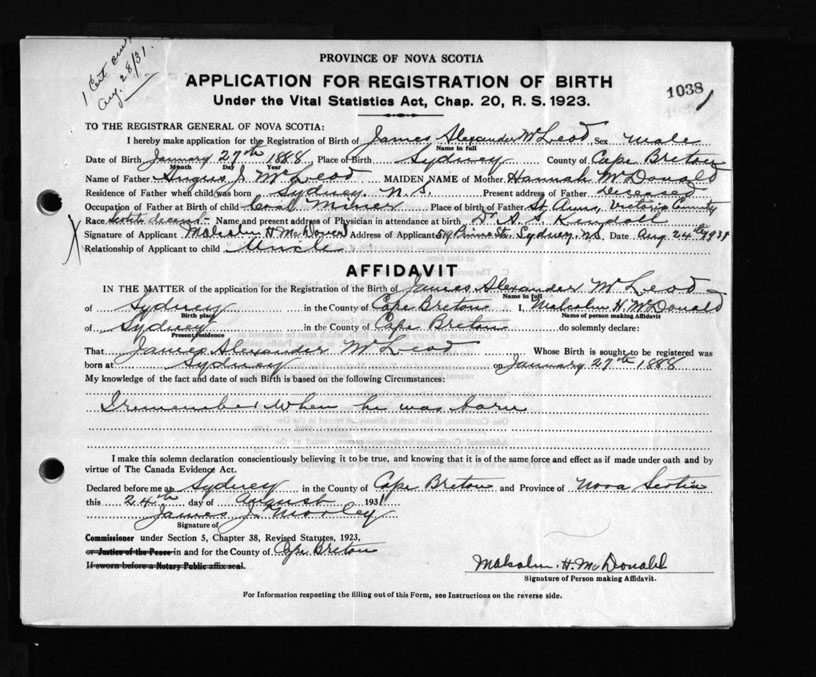 1 Cert
Aug. 28/31.
PROVINCE OF NOVA SCOTIA
APPLICATION FOR REGISTRATION OF BIRTH
Under the Vital Statistics Act, Chap. 20, R. S. 1923.
1038
TO THE REGISTRAR GENERAL OF NOVA SCOTIA:
I hereby make application for the Registration of Birth of James Alexander McLeod, Sex male
Name in full
Date of Birth January 27th 1888 Place of Birth Sydney County of Cape Breton
Month Day Year
Name of Father Angus J. McLeod MAIDEN NAME of Mother Hannah McDonald
Residence of Father when child was born Sydney N.S. Present address of Father Deceased
Occupation of Father at Birth of child Coal Miner Place of birth of Father St. Anns, Victoria County
Race Scotch decent Name and present address of Physician in attendance at birth Dr. A. S. Kendall
Signature of Applicant Malcolm H McDonald Address of Applicant St., Sydney, N.S. Date Aug 24th 1931
Relationship of Applicant to child Uncle
AFFIDAVIT
IN THE MATTER of the application for the Registration of the Birth of James Alexander McLeod
Name in full
of Sydney in the County of Cape Breton I, Malcolm H. McDonald
Birth place Name of person making Affidavit
of Sydney in the County of Cape Breton do solemnly declare:
Present residence
That James Alexander McLeod Whose Birth is sought to be registered was
born at Sydney on January 27th 1888
My knowledge of the fact and date of such Birth is based on the following Circumstances:
I remember when he was born
I make this solemn declaration conscientiously believing it to be true, and knowing that it is of the same force and effect as if made under oath and by
virtue of The Canada Evidence Act.
Declared before me at Sydney in the County of Cape Breton and Province of Nova Scotia
this 24th day of August 1931
James J. Morley
Signature of
Commissioner under Section 5, Chapter 38, Revised Statutes, 1923,
or Justice of the Peace in and for the County of Cape Breton
If sworn before a Notary Public affix seal.
Malcolm. H. McDonald
Signature of Person making Affidavit.
For Information respecting the filling out of this Form, see Instructions on the reverse side.